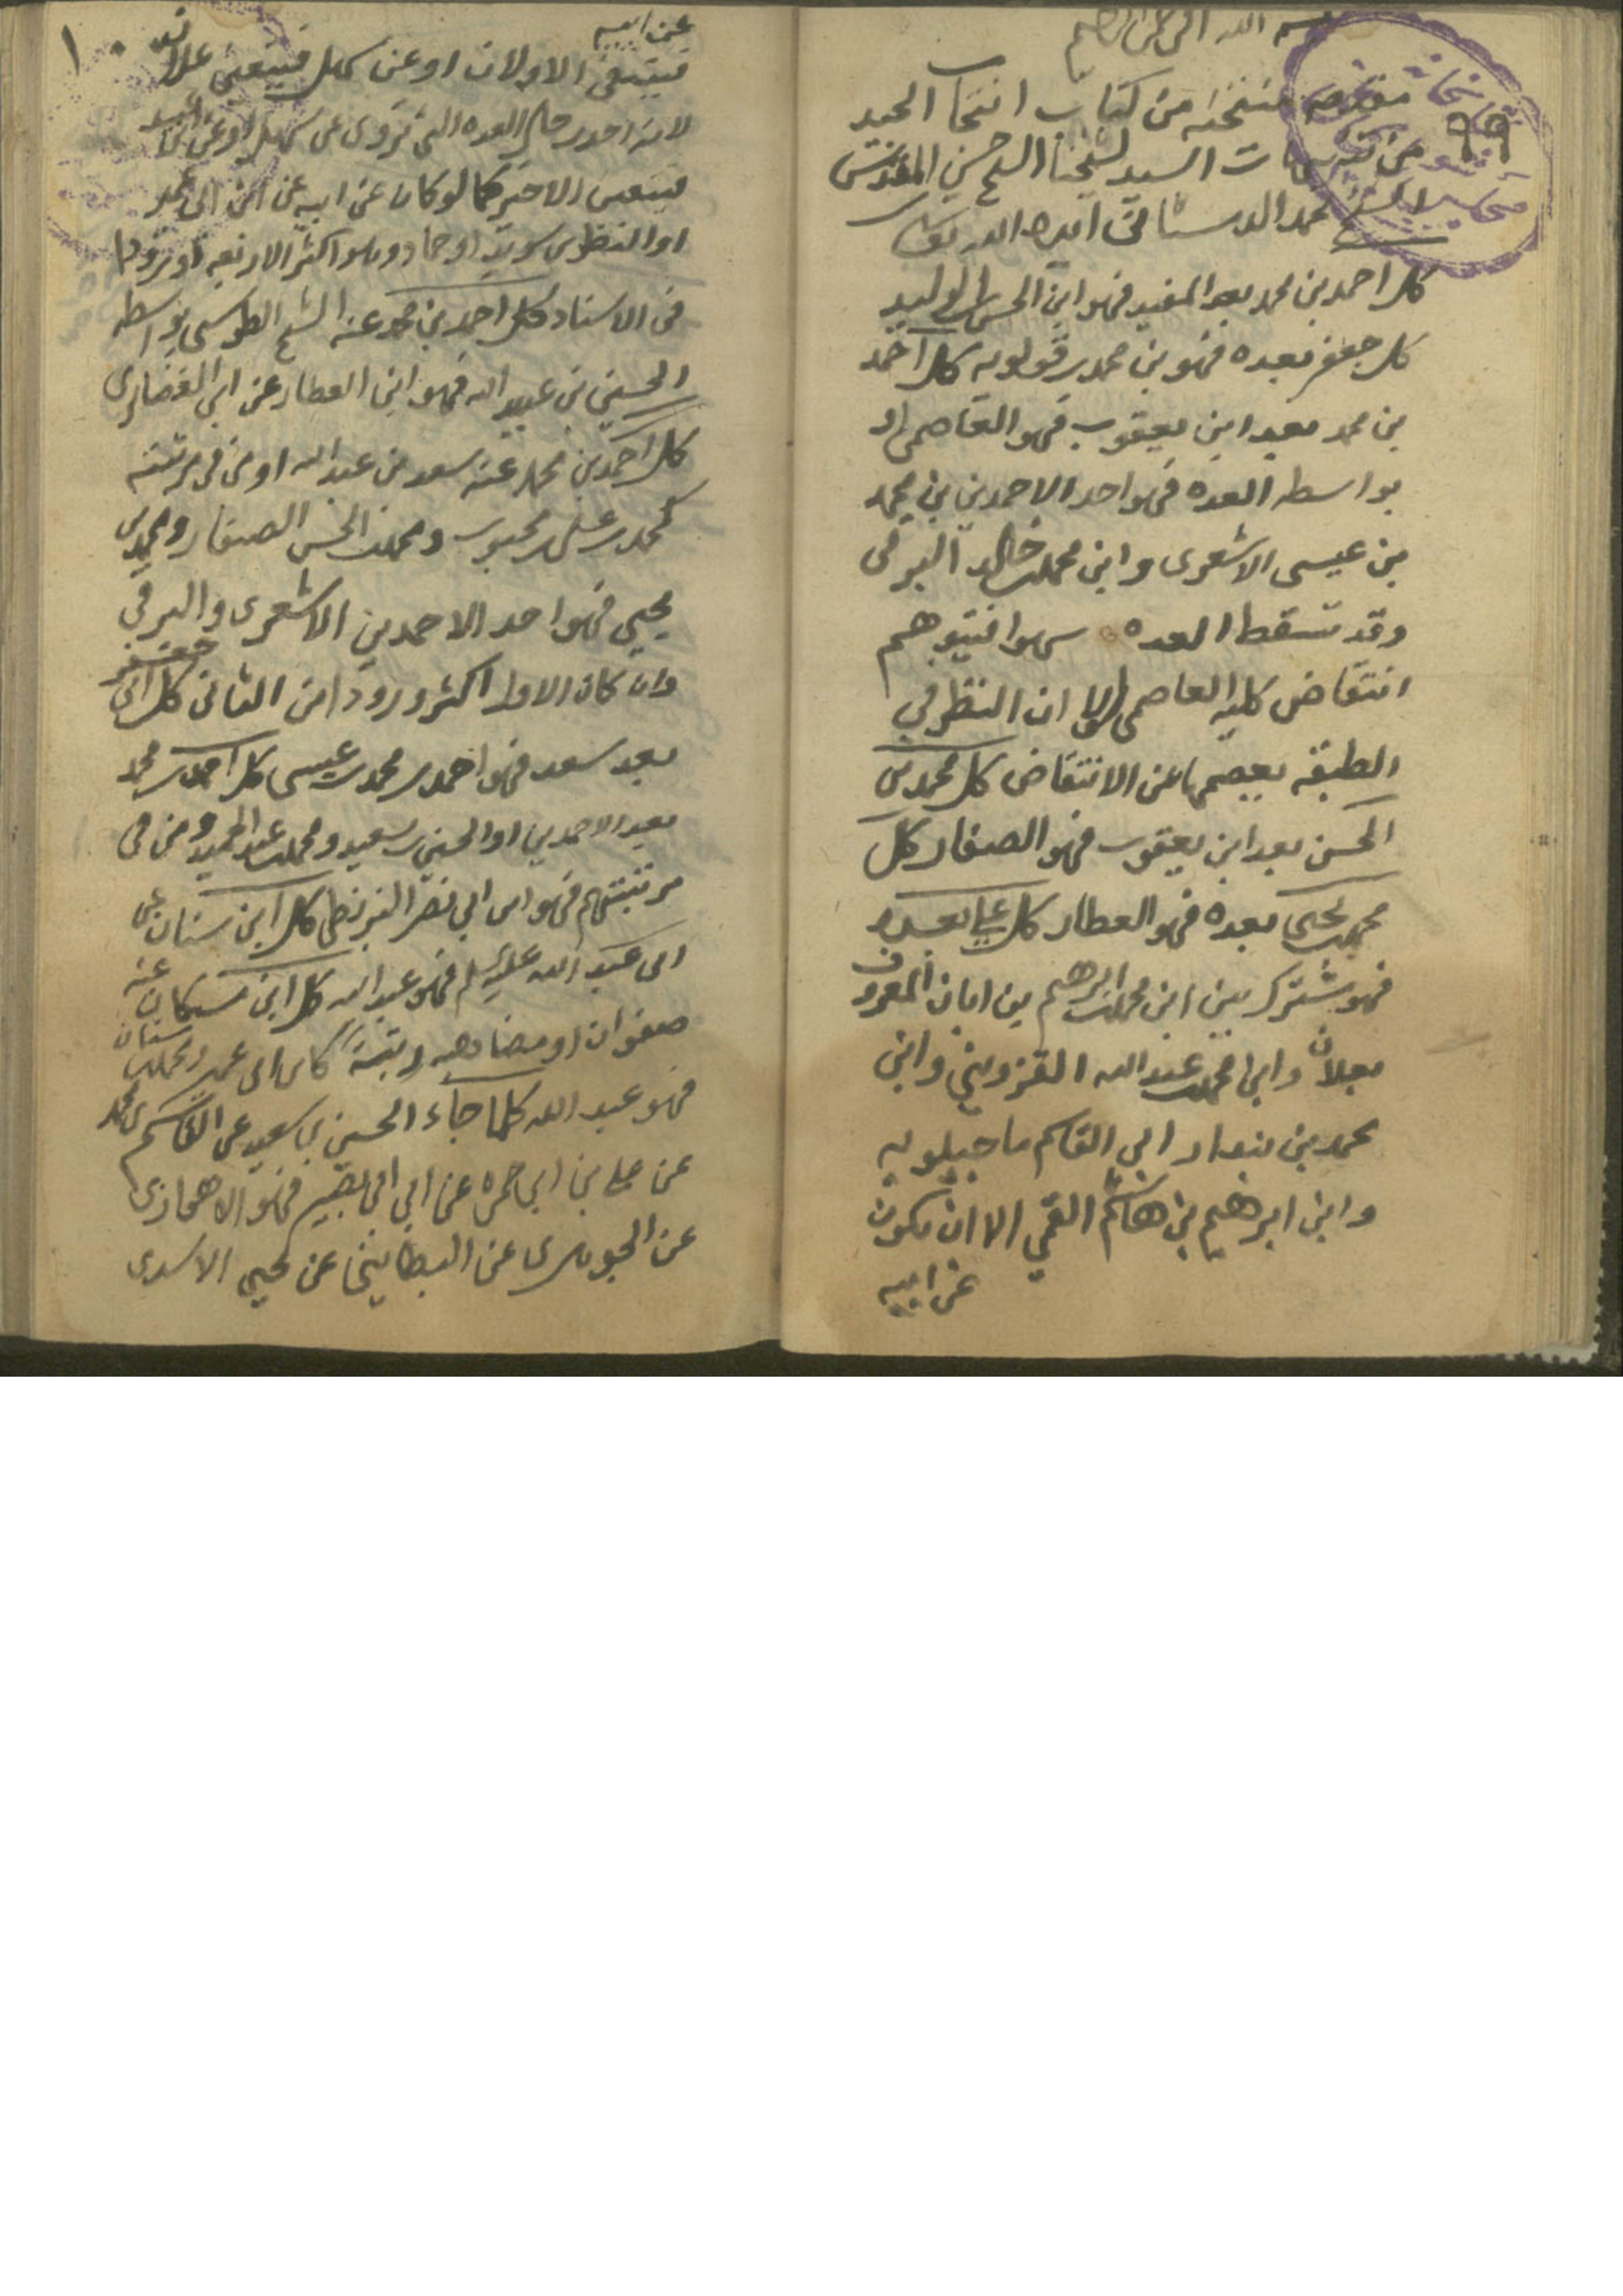 بسم الله الرحمن الرحيم
مقدمه منتخبه من كتاب انتخاب الجيد
من تنبيهات السيد لشيخنا الشيخ حسن
الشيخ محمد الدمستاني ايده الله تعالى
٩٩
كل احمد بن محمد بعد المفيد فهو ابن الحسن بن الوليد
كل جعفر بعده فهو بن محمد بن قولويه كل احمد
بن محمد بعد ابن يعقوب فهو العاصمي او
بواسطه العده فهو احد الاحمدين بن محمد
بن عيسى الاشعرى وابن محمد بن خالد البرقى
وقد تسقط العده سهوا فيتوهم
انتقاض كليه العاصمى الا ان النظر في
الطبقه يعصمها عن الانتقاض كل محمد بن
الحسن بعد ابن يعقوب فهو الصفار كل
محمد بن يحيى بعده فهو العطار كل علي بعده
فهو مشترك بين ابن محمد بن ابرهيم بن ابان المعروف
بعلان وابن محمد بن عبد الله القزويني وابن
محمد بن بندار ابي القاسم ماجيلويه
وابن ابرهيم بن هاشم القمي الا ان يكون
عن ابيه
١٠
عن ابيه
فينتفى الاولان او عن سهل فيتعين علان
لانه احد رجال العده التي تروى عن سهل او عن ابيه
فيتعين الاخير كما لو كان عن ابيه عن ابن ابى عمير
او النضر بن سويد او حماد وهو اكثر الاربعه
فى الاسناد كل احمد بن محمد عنه الشيخ الطوسى بواسطه
الحسين بن عبيد الله فهو ابن العطار عن ابي الغضايرى
كل احمد بن محمد عنه سعد بن عبد الله او من في مرتبته
كمحمد بن على بن محبوب ومحمد بن الحسن الصفار ومحمد بن
يحيى فهو احد الاحمدين الاشعرى والبرقي
وان كان الاول اكثر ورودا من الثانى كل ابى جعفر
بعد سعد فهو احمد بن محمد بن عيسى كل احمد بن محمد
بعد الاحمدين او الحسين بن سعيد ومحمد بن عبد الحميد ومن فى
مرتبتهم فهو ابن ابي نصر البزنطى كل ابن سنان عن
ابى عبد الله عليه السلم فهو عبد الله كل ابن مسكان عنه
صفوان او مضاهيه رتبة كابن ابى عمير ومحمد بن سنان
فهو عبد الله كلما جاء الحسين بن سعيد عن القاسم بن محمد
عن علي بن ابي حمزه عن ابي بصير فهو الاهوازى
عن الجوهرى عن البطاينى عن يحيى الاسدى